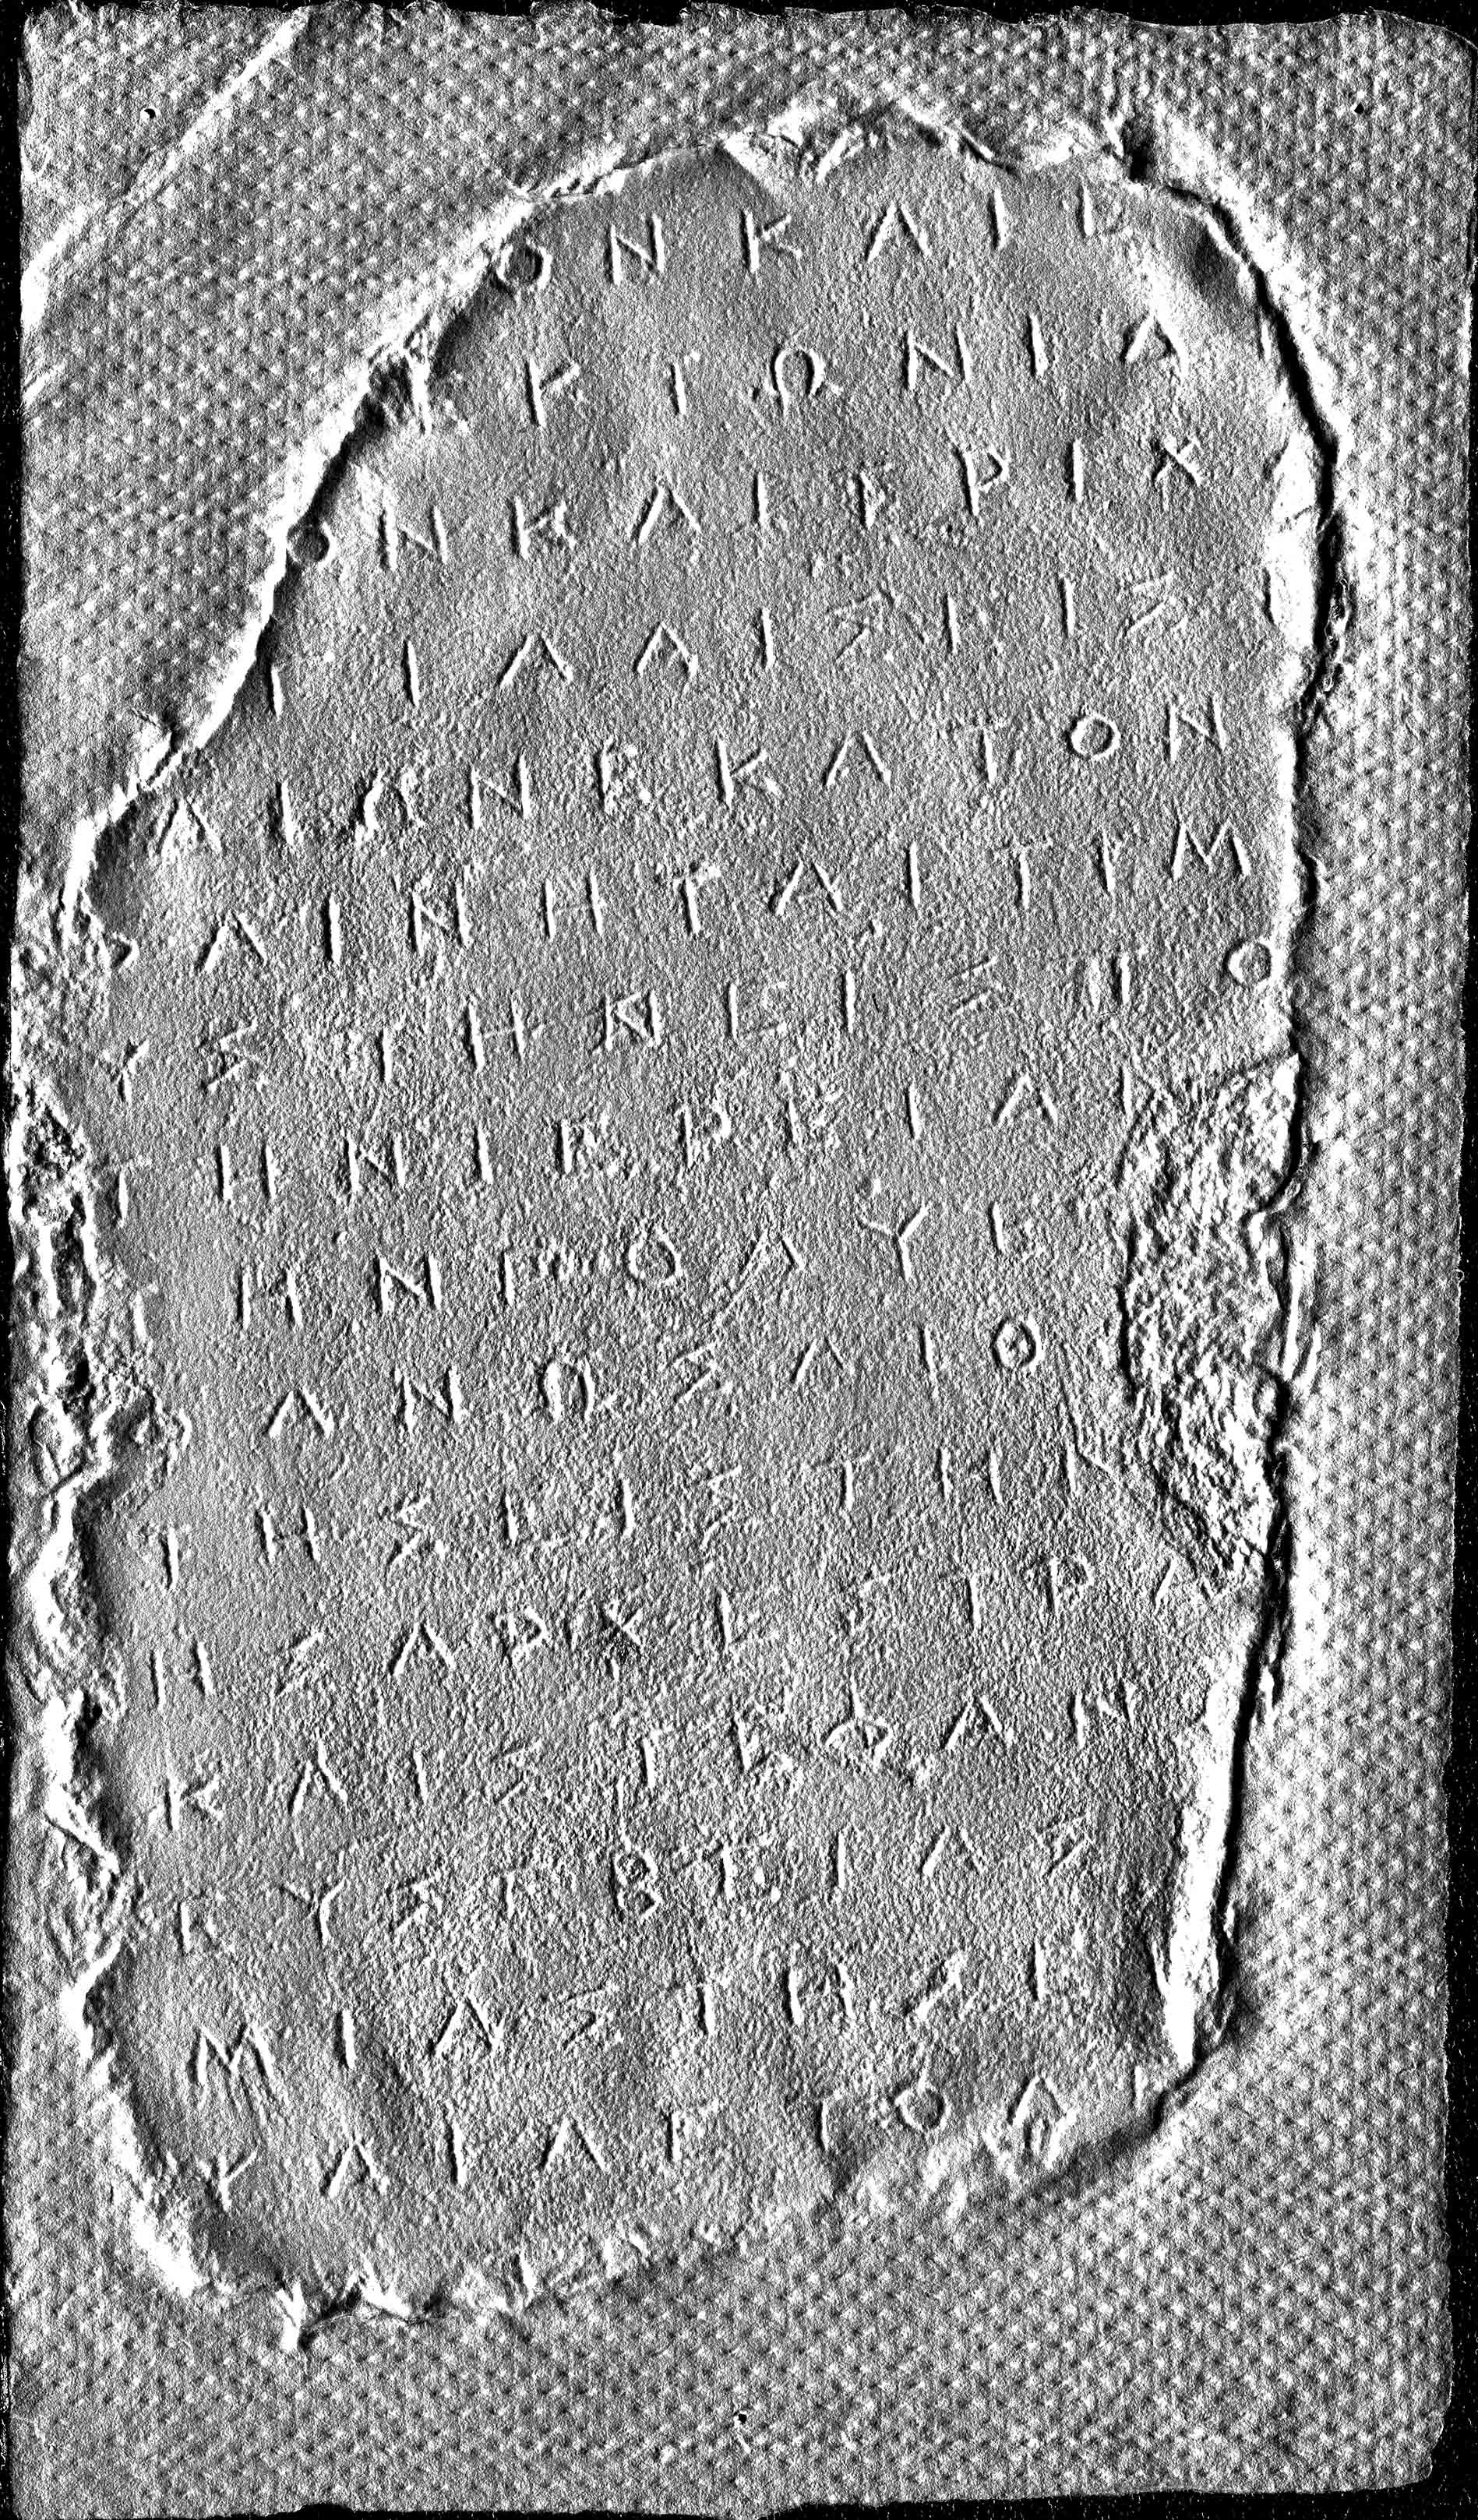 ΟΝΚΑΙ
ΚΙΩΝΙΑ
ΟΝΚΑΙΕΡΙΧ
ΙΛΑΙΣΕΙΣ
ΑΙΩΝΕΚΑΤΟΝ
ΦΑΙΝΗΤΑΙΤΙΜ
ΥΣΤΗΝΕΙΣΠΟ
ΤΗΝΙΕΡΕΙΑΝ
ΤΗΝΠΟΛΥΕ
ΦΑΝΩΣΑΙΘ
ΤΗΣΕΙΣΤΗΝ
ΗΣΑΡΧΕΣΤΡΑ
ΚΑΙΣΤΕΦΑΝ
ΕΥΣΕΒΕΙΑΣ
ΜΙΑΣΤΗΣΕΙ
ΚΑΙΑΠΟΔ